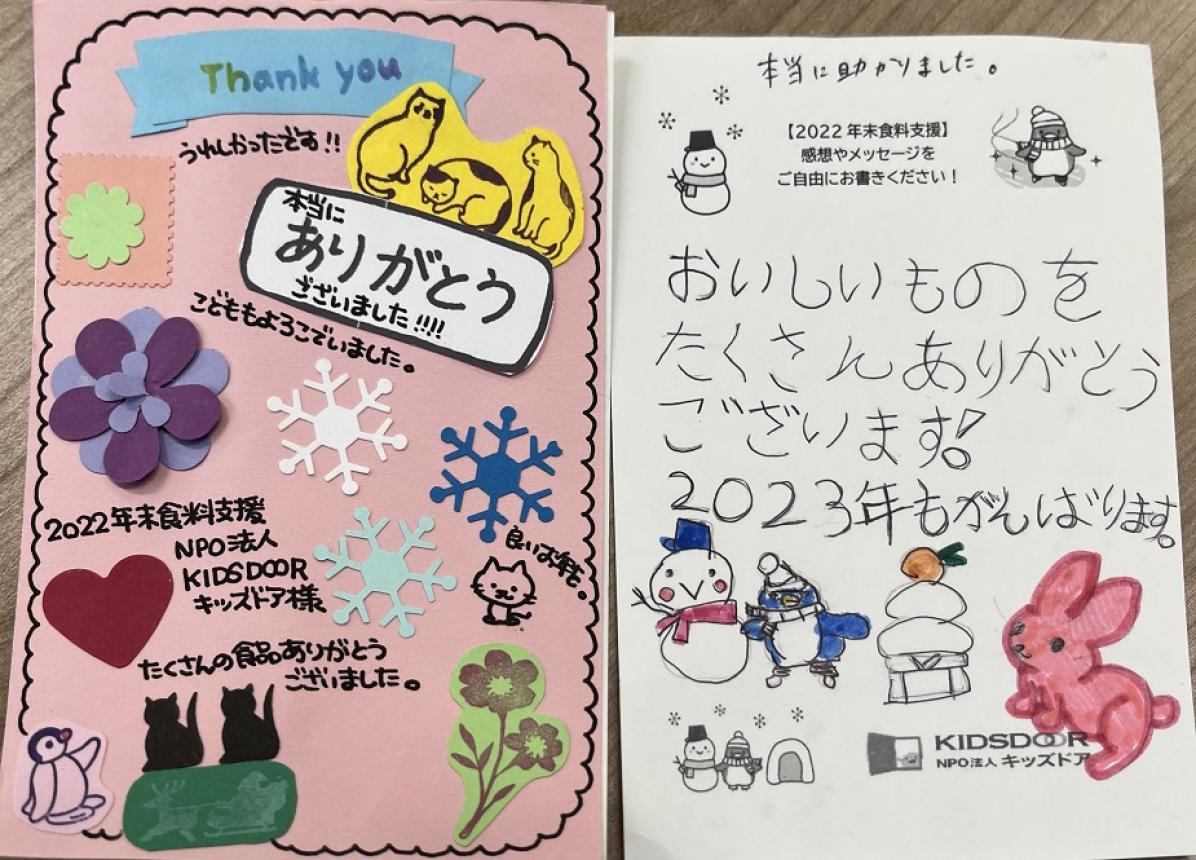 Thank you
うれしかったです!!
本当に
ありがとう
ございました!!!!
こどももよろこでいました。
2022年末食料支援
NPO法人
KIDSDOOR
キッズドア様
良いお年を。
たくさんの食品ありがとう
ございました。
本当に助かりました。
【2022年末食料支援】
感想やメッセージを
ご自由にお書きください!
おいしいものを
たくさんありがとう
ございます!
2023年もがんばります。
KIDSDOOR
NPO法人 キッズドア